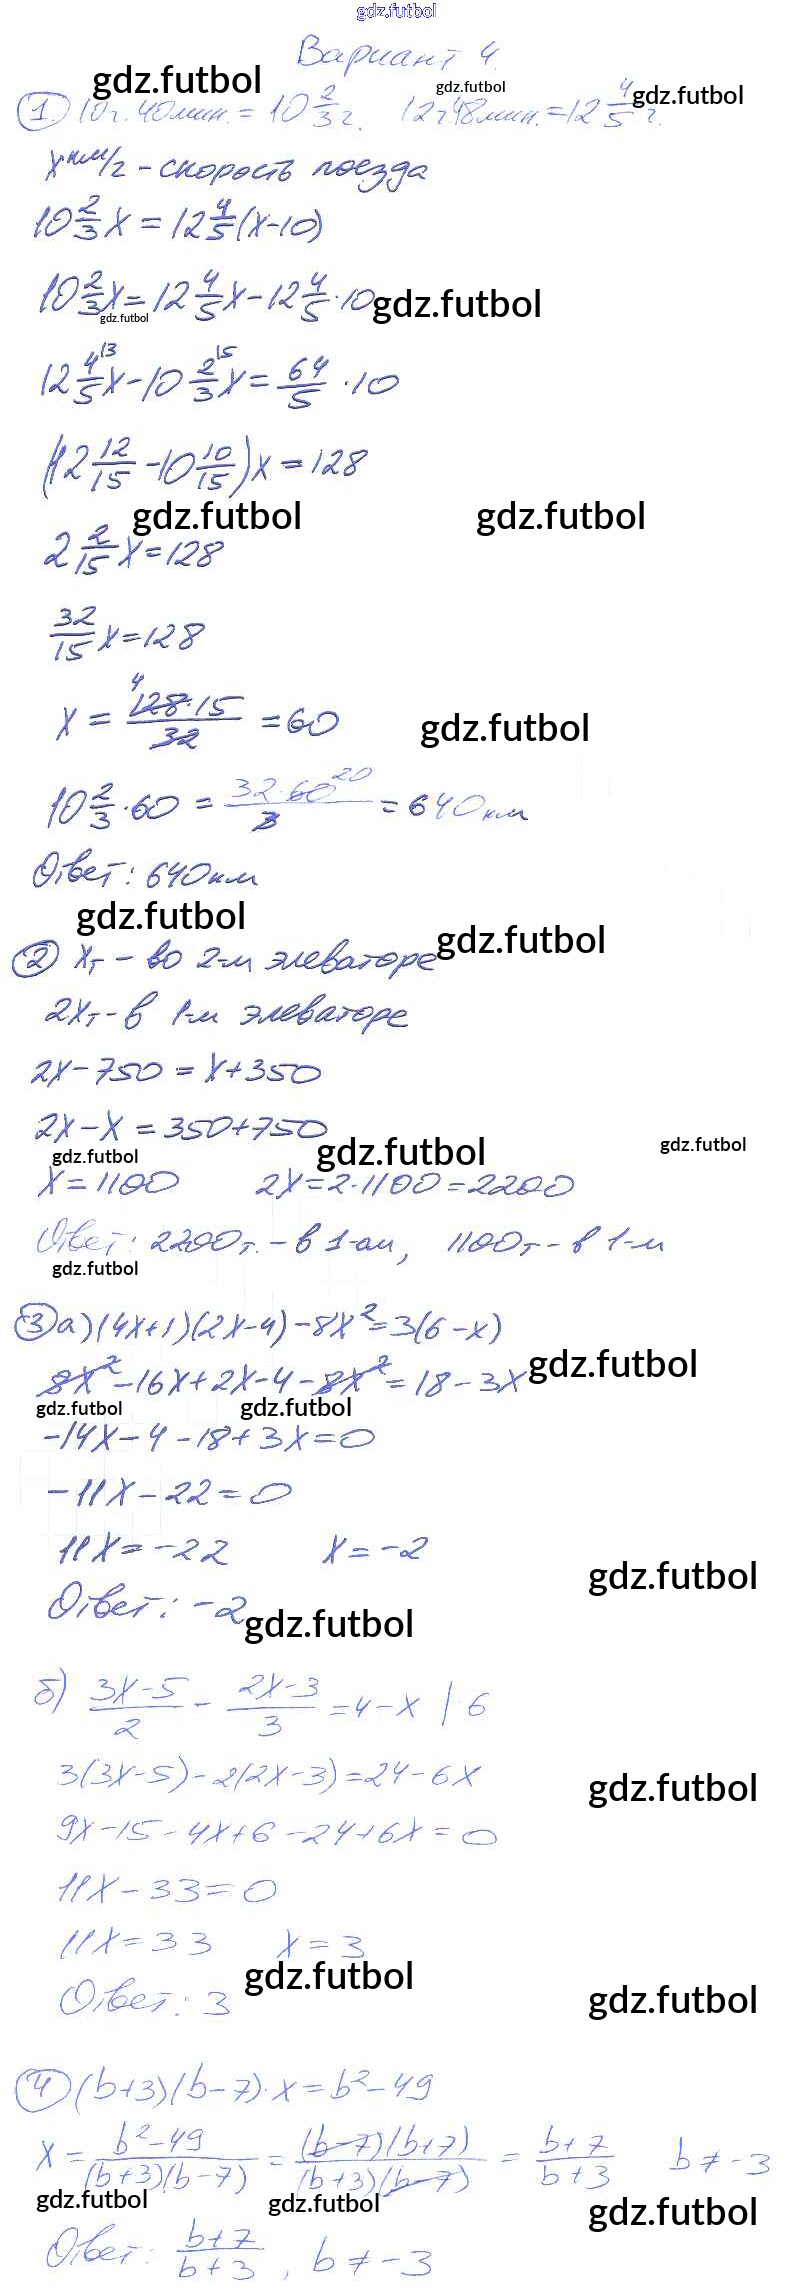 gdz.futbol
Вариант 4.
gdz.futbol gdz.futbol gdz.futbol
1. 10ч. 40мин. = 10 2/3 ч. 12ч.48мин. = 12 4/5 ч.
x км/ч - скорость поезда
10 2/3 x = 12 4/5 (x-10)
10 2/3 x = 12 4/5 x - 12 4/5 · 10
gdz.futbol gdz.futbol
12 4/5 ^(3 x - 10 2/3 ^(5 x = 64/5 · 10
(12 12/15 - 10 10/15) x = 128
gdz.futbol gdz.futbol
2 2/15 x = 128
32/15 x = 128
x = 4 128·15/32 = 60
gdz.futbol
10 2/3 · 60 = 32·60 20/3 = 640км
Ответ: 640км
gdz.futbol gdz.futbol
2 xт - во 2-м элеваторе
2xт - в 1-м элеваторе
2x - 750 = x + 350
2x - x = 350 + 750
gdz.futbol gdz.futbol gdz.futbol
x = 1100 2x = 2·1100 = 2200
Ответ: 2200т. - в 1-ом, 1100т - в 1-м
gdz.futbol
3 а) (4x+1)(2x-4) - 8x² = 3(6-x)
gdz.futbol
8x² - 16x + 2x - 4 - 8x² = 18 - 3x
gdz.futbol gdz.futbol
-14x - 4 - 18 + 3x = 0
-11x - 22 = 0
11x = -22 x = -2
gdz.futbol
Ответ: -2
gdz.futbol
б) 3x-5/2 - 2x-3/3 = 4 - x | · 6
3(3x-5) - 2(2x-3) = 24 - 6x
gdz.futbol
9x - 15 - 4x + 6 - 24 + 6x = 0
11x - 33 = 0
11x = 33 x = 3
gdz.futbol
Ответ: 3
gdz.futbol
4 (b+3)(b-7)·x = b² - 49
x = b²-49/(b+3)(b-7) = (b-7)(b+7)/(b+3)(b-7) = b+7/b+3 b ≠ -3
gdz.futbol gdz.futbol gdz.futbol
Ответ: b+7/b+3, b ≠ -3